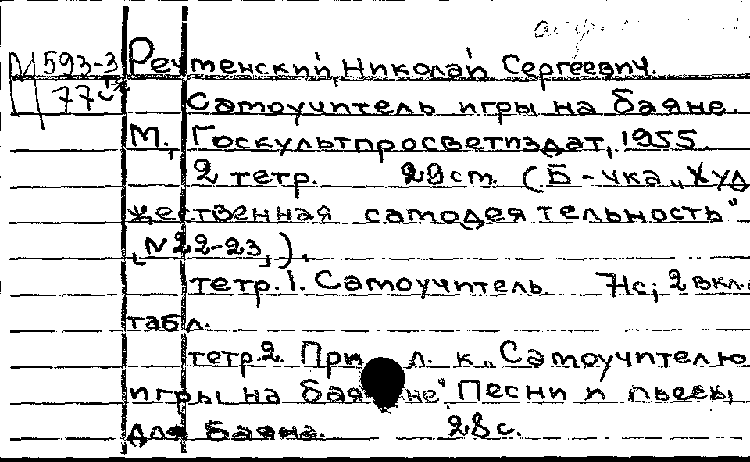 М 593-3 Речменский, Николай Сергеевич.
77 Самоучитель игры на баяне.
М., Госкультпросветиздат, 1955.
2 тетр. 29 см. (Б-чка „Худ
жественная самодеятельность"
[N 22-23]).
тетр. 1. Самоучитель. 74с; 2 вкл.
табл.
тетр 2. При л. к „Самоучителю
игры на баяне". Песни и пьесы
для баяна. 28 с.